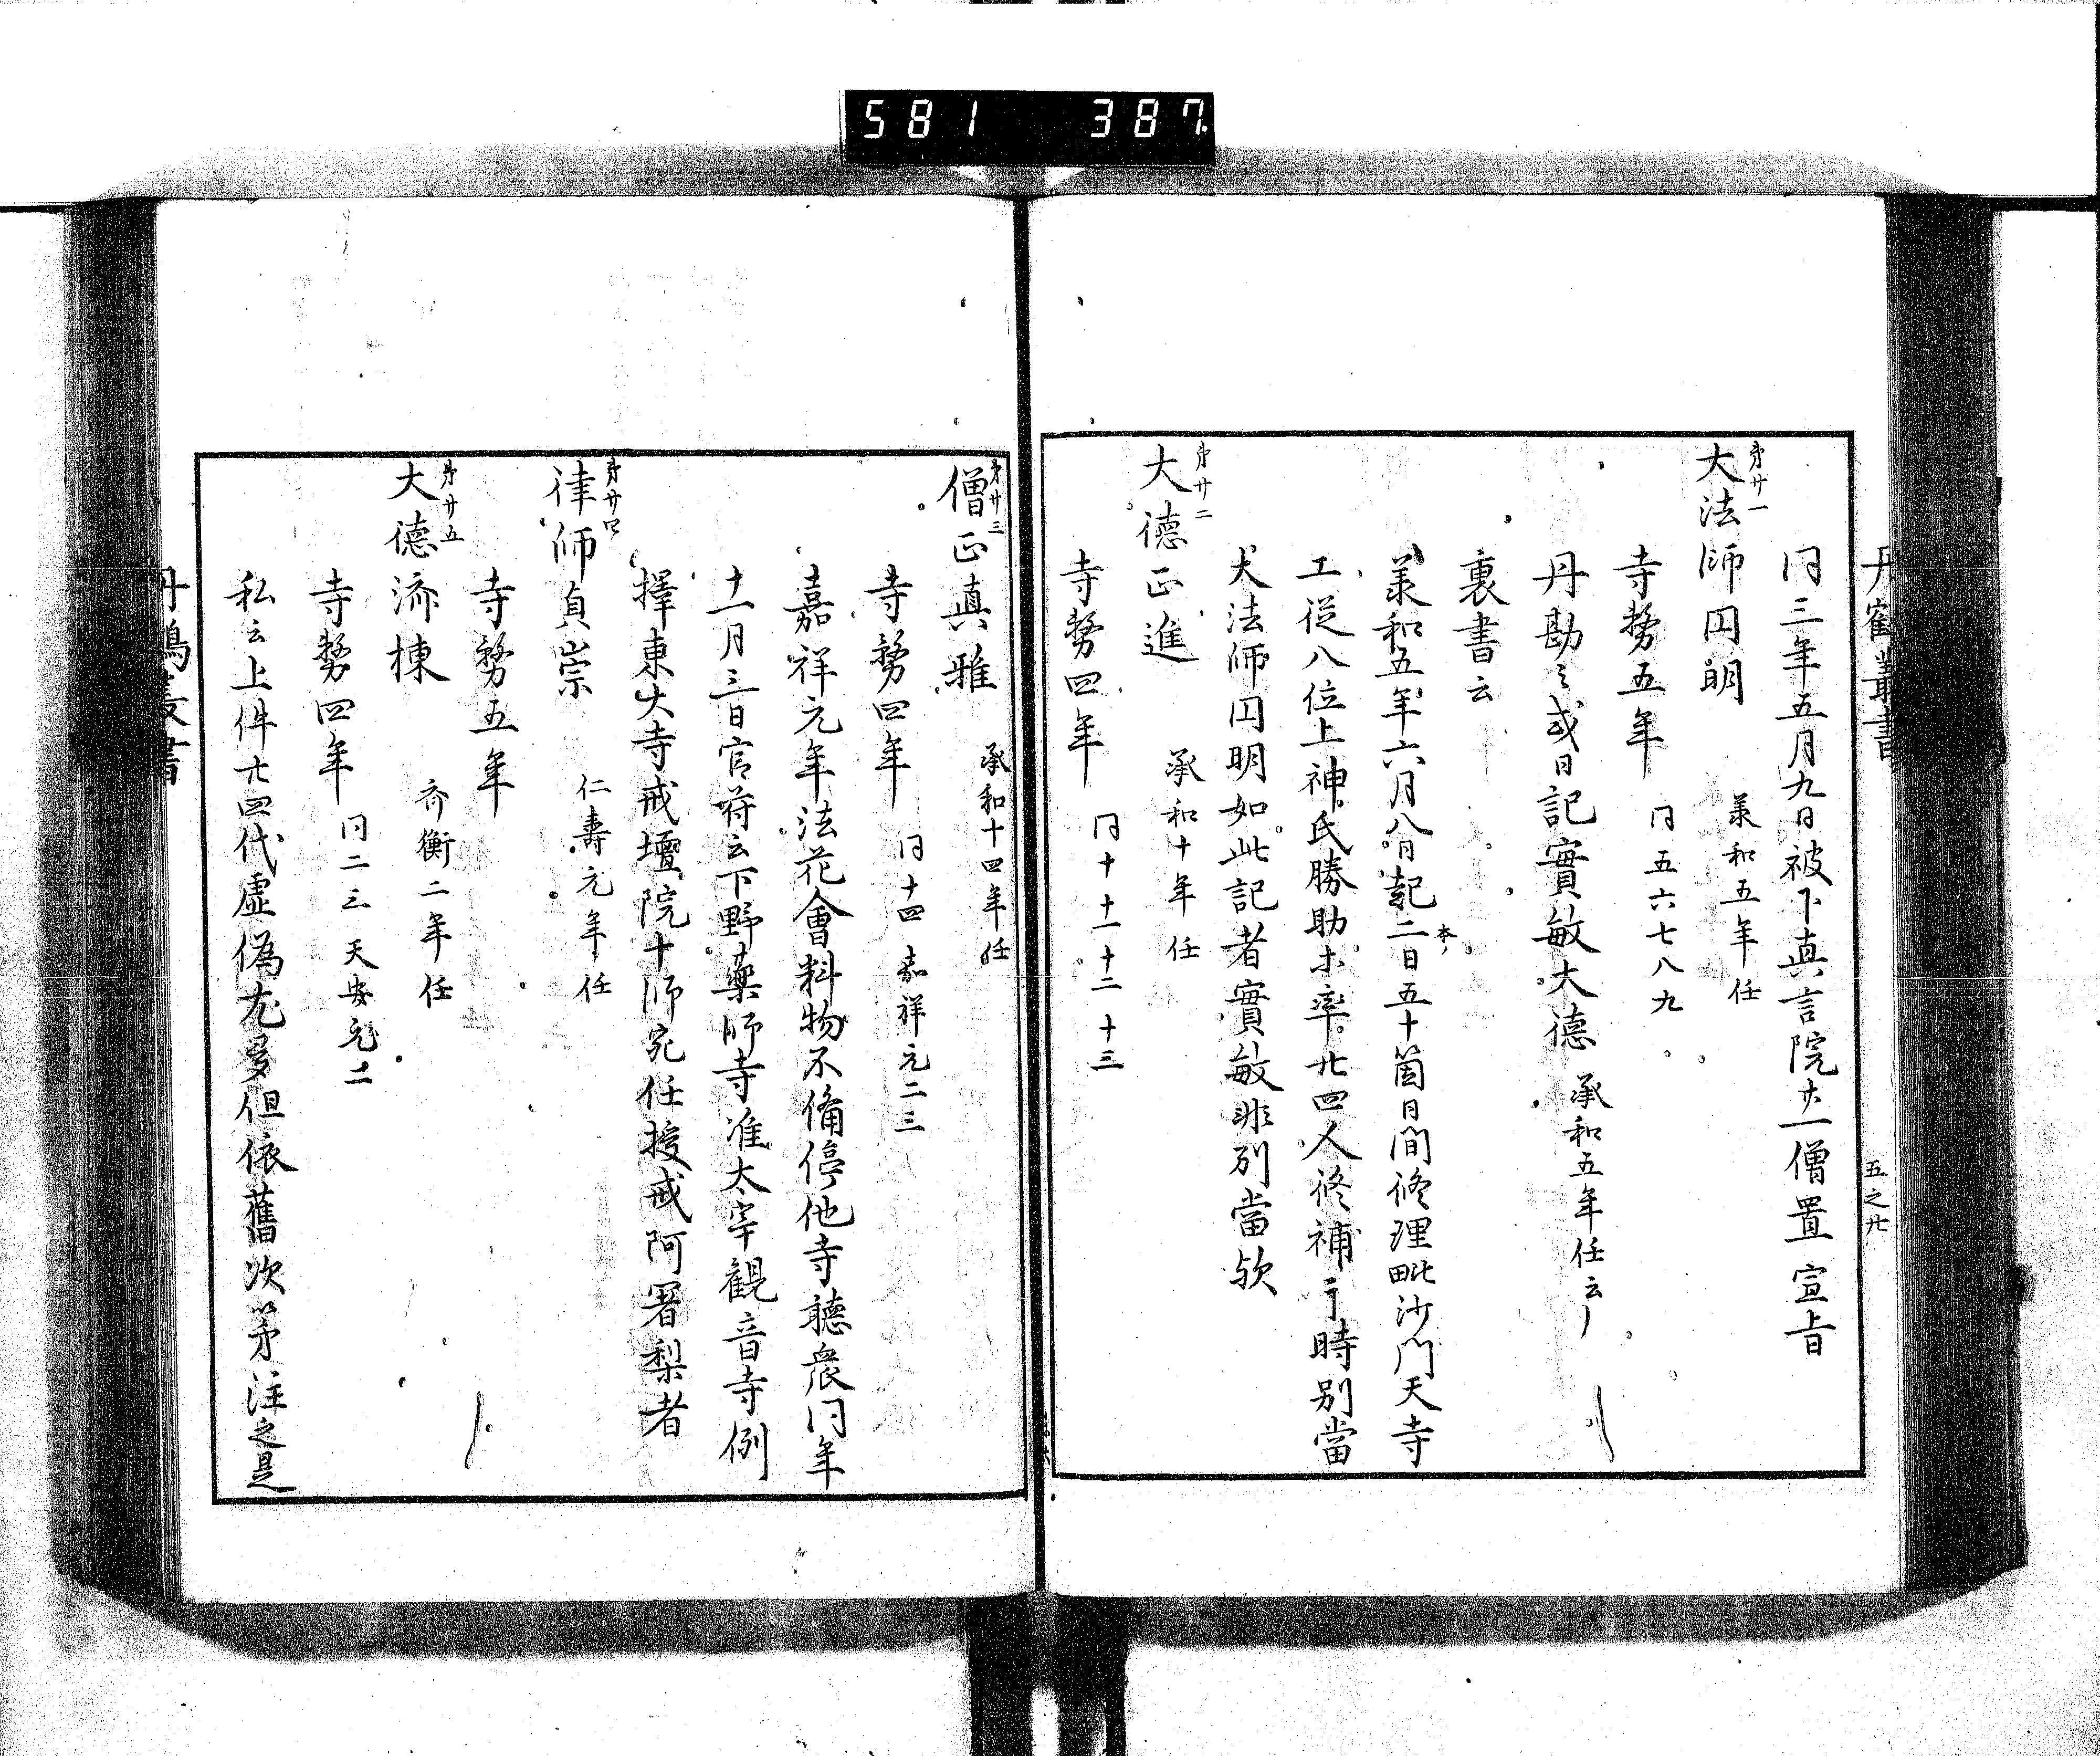 581 387
丹鶴叢書
五之廿
同三年五月九日被下真言院廿一僧置宣旨
第廿一
大法師円明 承和五年任
寺務五年 同五六七八九
丹勘云或日記實敏大徳 承和五年任云〻
裏書云
承和五年六月八日記二日五十箇日間修理毗沙門天寺
本ノ
工従八位上神氏勝助等率廿四人修補了時別當
大法師円明如此記者實敏非別當欤
第廿二
大徳正進 承和十年任
寺務四年 同十 十一 十二 十三
第廿三
僧正真雅 承和十四年任
寺務四年 同十四 嘉祥元二三
嘉祥元年法花會料物不備停他寺聴衆同年
十一月三日官符云下野藥師寺准太宰觀音寺例
擇東大寺戒壇院十師宛任授戒阿署梨者
第廿四
律師貞崇 仁壽元年任
寺務五年
第廿五
大徳済棟 齊衡二年任
寺務四年 同二三 天安元二
私云上件廿四代虚偽尤多但依舊次第注之是
丹鶴叢書